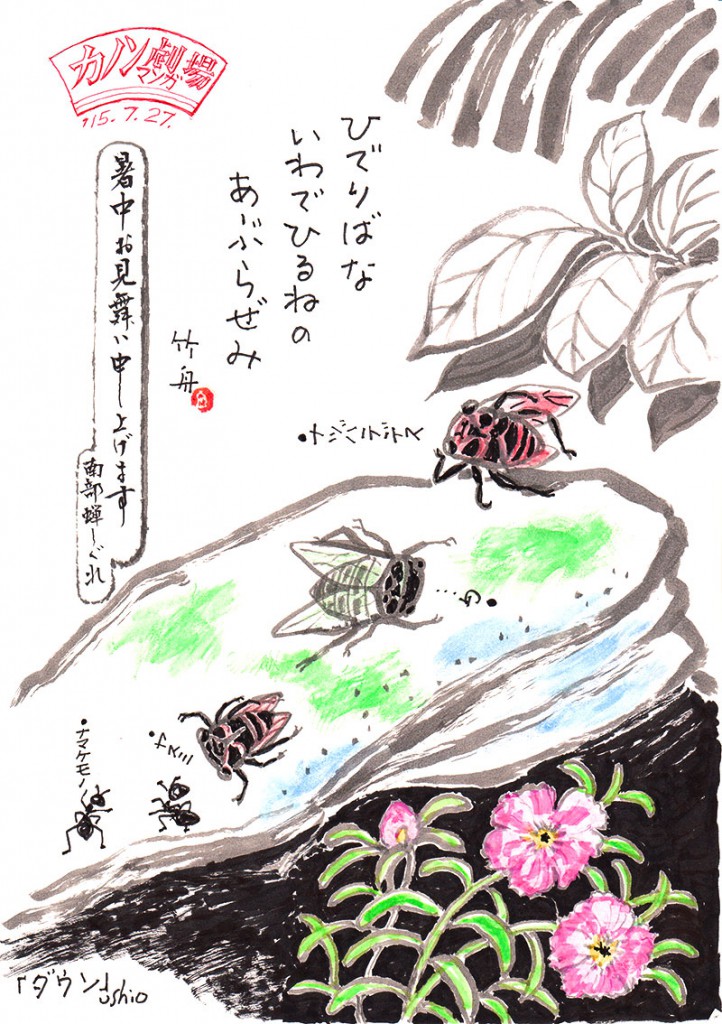 カノン劇場
マンガ
'15.7.27.
ひでりばな
いわでひるねの
あぶらぜみ
竹舟
暑中お見舞い申し上げます
南部蝉しぐれ
・ナマケモノ
「ダウン」
ushio